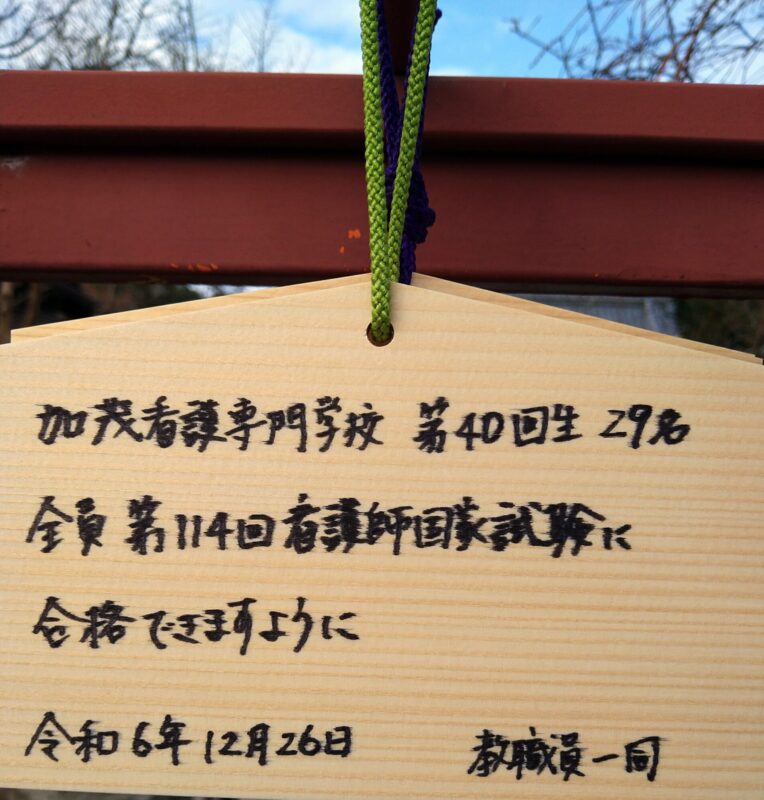 加茂看護専門学校 第40回生 29名
全員 第114回看護師国家試験に
合格できますように
令和6年12月26日 教職員一同